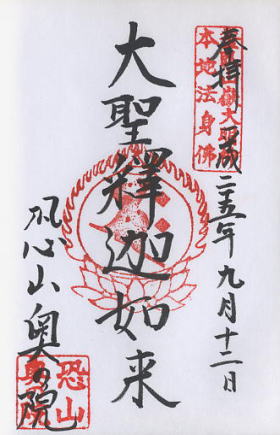 奉拝
平成二五年九月十二日
本地法身佛
大聖釋迦如来
恐山奥の院
恐山